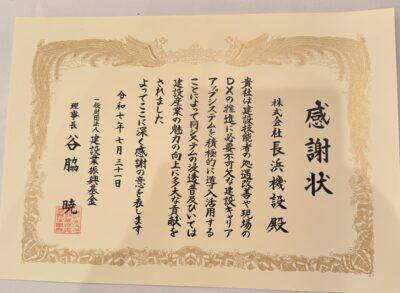 感謝状
株式会社長浜機設 殿
貴社は建設技能者の処遇改善や現場の
DXの推進に必要不可欠な建設キャリア
アップシステムを積極的に導入活用する
ことによって同システムの浸透普及ひいては
建設産業の魅力の向上に多大な貢献を
されました
よってここに深く感謝の意を表します
令和七年七月三十一日
一般財団法人 建設業振興基金
理事長 谷脇 暁